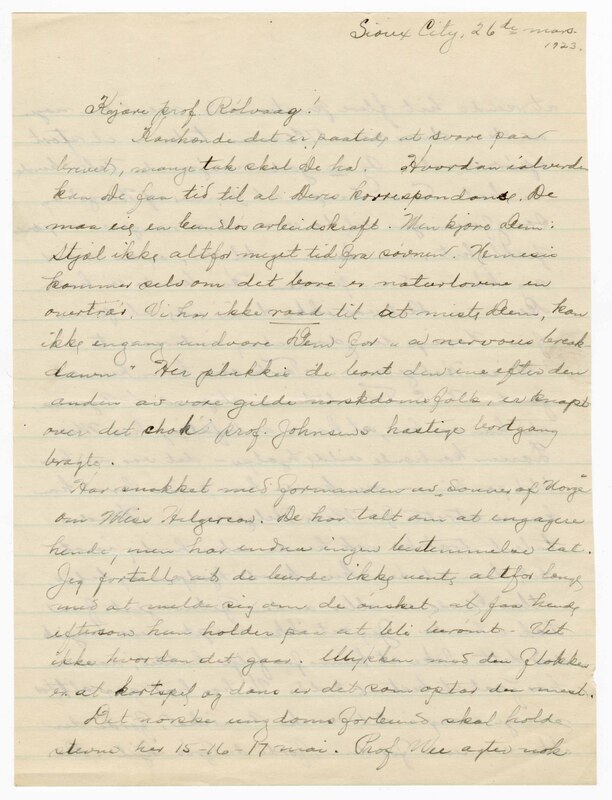 Sioux City, 26de mars.
1923.
Kjære prof. Rölvaag!
Kanhende det er paatide at svare paa
brevet, mange tak skal De ha. Hvordan ialverden
kan De faa tid til al Deres korrespondans. De
maa eie en bundlös arbeidskraft. Men kjære Dem:
Stjæl ikke altfor meget tid fra sövnen. Nemesis
kommer selv om det bare er naturlovene en
overtrær. Vi har ikke raad til at miste Dem, kan
ikke engang undvære Dem for "a nervous break-
down" Her plukkes de bort den ene efter den
anden av vore gilde norskdomsfolk, er knapt
over det chok prof. Johnsens hastige bortgang
bragte.
Har snakket med formanden av "Sons of Norge"
om Miss Helgeson. De har talt om at engagere
hende, men har endnu ingen bestemmelse tat.
Jeg fortalte at de burde ikke vente altfor længe
med at melde sig om de önsket at faa hende
eftersom hun holder paa at bli berömt. Vet
ikke hvordan det gaar. Ulykken med den flokken
er at kortspil og dans er det som optar dem mest.
Det norske ungdomsforbund skal holde
stevne her 15-16-17 mai. Prof. Wee agter nok